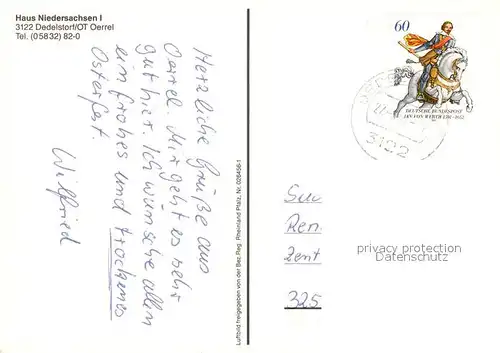 Haus Niedersachsen I
3122 Dedelstorf/OT Oerrel
Tel. (05832) 82-0
Herzliche Grüße aus
Oerrel. Mir geht es sehr
gut hier. Ich wünsche allen
ein frohes und trockenes
Osterfest.
Wilfried
Luftbild freigegeben von der Bez.Reg. Rheinland Pfalz, Nr. 026456-1
60
DEUTSCHE BUNDESPOST
JAN VON WERTH 1591-1652
3122
Ren
Zent
325
privacy protection
Datenschutz